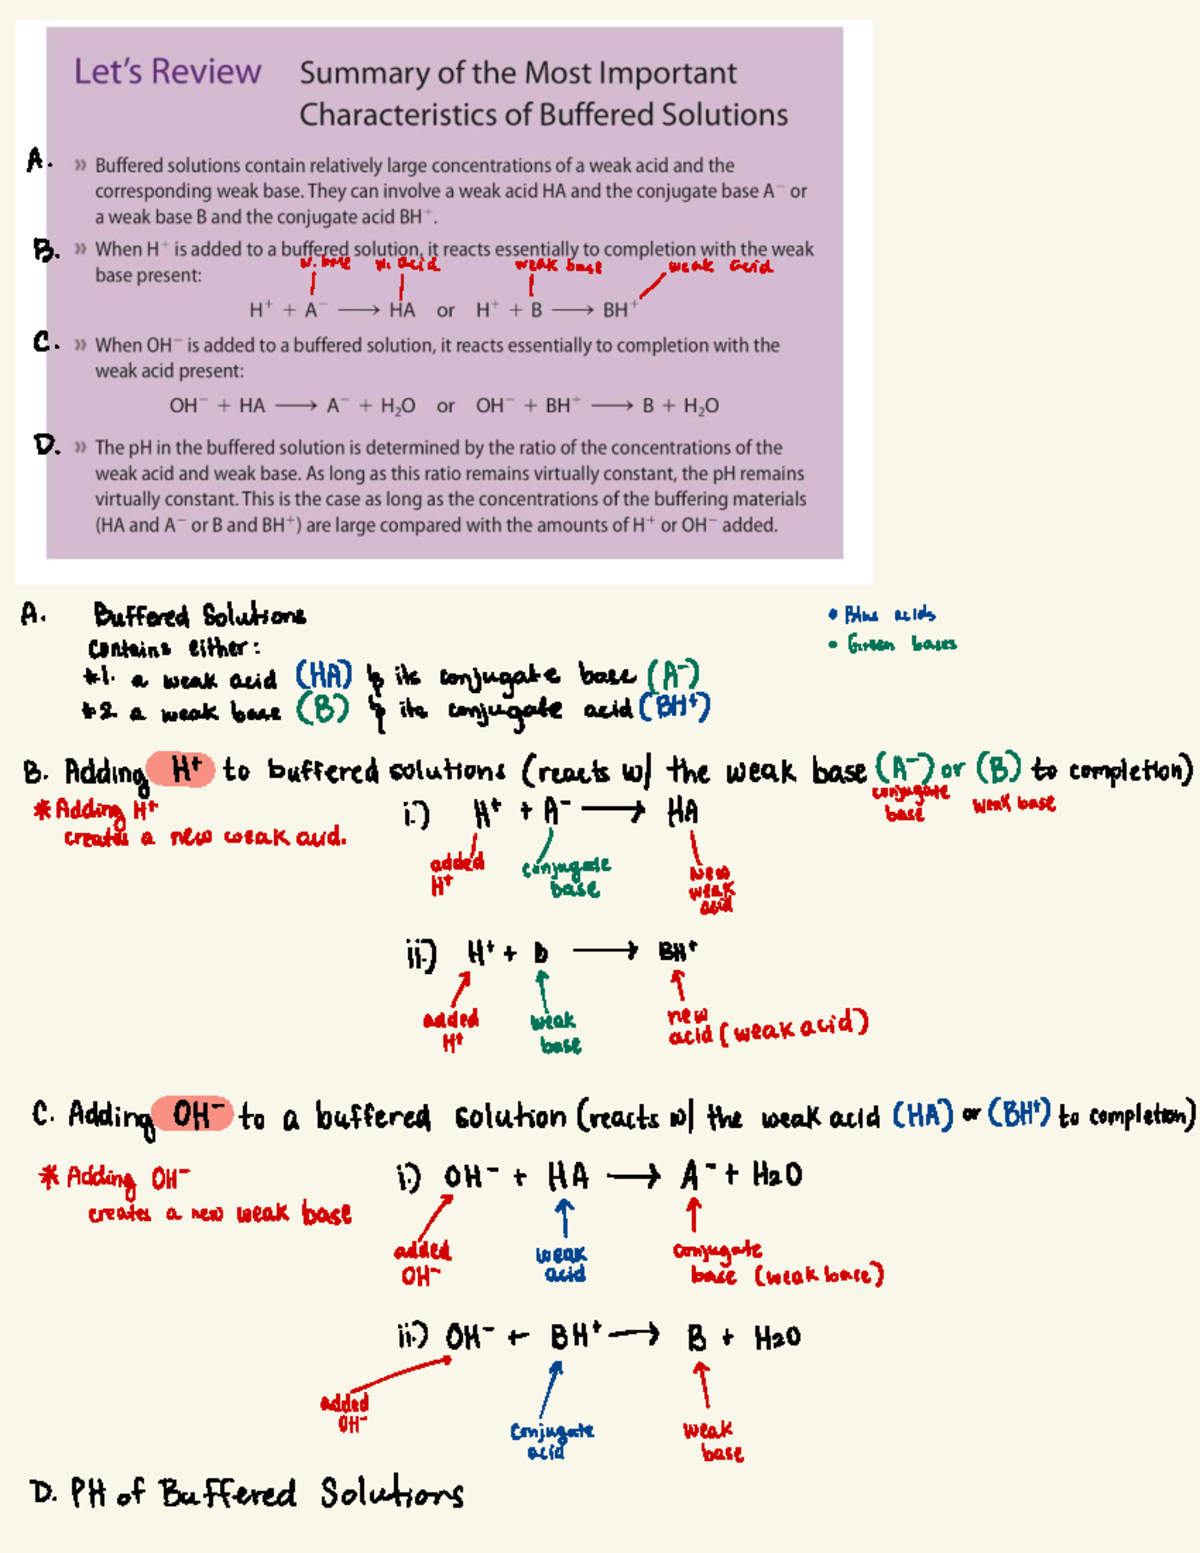 Let's Review Summary of the Most Important
Characteristics of Buffered Solutions
A. » Buffered solutions contain relatively large concentrations of a weak acid and the
corresponding weak base. They can involve a weak acid HA and the conjugate base A⁻ or
a weak base B and the conjugate acid BH⁺.
B. » When H⁺ is added to a buffered solution, it reacts essentially to completion with the weak
base present:
w. base w. acid weak base weak acid
H⁺ + A⁻ ⟶ HA or H⁺ + B ⟶ BH⁺
C. » When OH⁻ is added to a buffered solution, it reacts essentially to completion with the
weak acid present:
OH⁻ + HA ⟶ A⁻ + H₂O or OH⁻ + BH⁺ ⟶ B + H₂O
D. » The pH in the buffered solution is determined by the ratio of the concentrations of the
weak acid and weak base. As long as this ratio remains virtually constant, the pH remains
virtually constant. This is the case as long as the concentrations of the buffering materials
(HA and A⁻ or B and BH⁺) are large compared with the amounts of H⁺ or OH⁻ added.
A. Buffered Solutions
• Blue acids
Contains either:
• Green bases
*1. a weak acid (HA) & its conjugate base (A⁻)
*2. a weak base (B) & its conjugate acid (BH⁺)
B. Adding H⁺ to buffered solutions (reacts w/ the weak base (A⁻) or (B) to completion)
conjugate base weak base
* Adding H⁺
creates a new weak acid.
i.) H⁺ + A⁻ ⟶ HA
added H⁺ conjugate base new weak acid
ii.) H⁺ + B ⟶ BH⁺
added H⁺ weak base new acid (weak acid)
C. Adding OH⁻ to a buffered solution (reacts w/ the weak acid (HA) or (BH⁺) to completion)
* Adding OH⁻
creates a new weak base
i.) OH⁻ + HA ⟶ A⁻ + H2O
added OH⁻ weak acid conjugate base (weak base)
ii.) OH⁻ + BH⁺ ⟶ B + H2O
added OH⁻ conjugate acid weak base
D. PH of Buffered Solutions